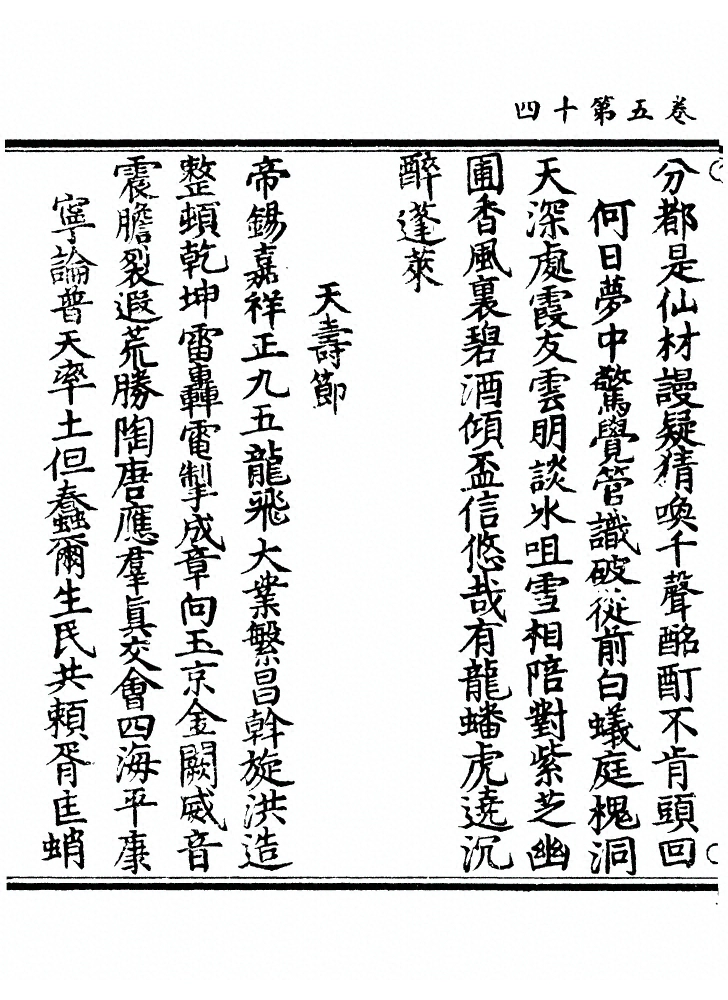 卷五第十四
分都是仙材謾疑猜喚千聲酩酊不肯頭回
何日夢中驚覺管識破從前白蟻庭槐洞
天深處霞友雲朋談冰咀雪相陪對紫芝幽
圃香風裏碧酒傾盃信悠哉有龍蟠虎遶沉
醉蓬萊
天壽節
帝錫嘉祥正九五龍飛大業繁昌斡旋洪造
整頓乾坤雷轟電掣成章向玉京金闕威音
震膽裂遐荒勝陶唐應羣真交會四海平康
寧論普天率土但蠢爾生民共賴胥匡蛸